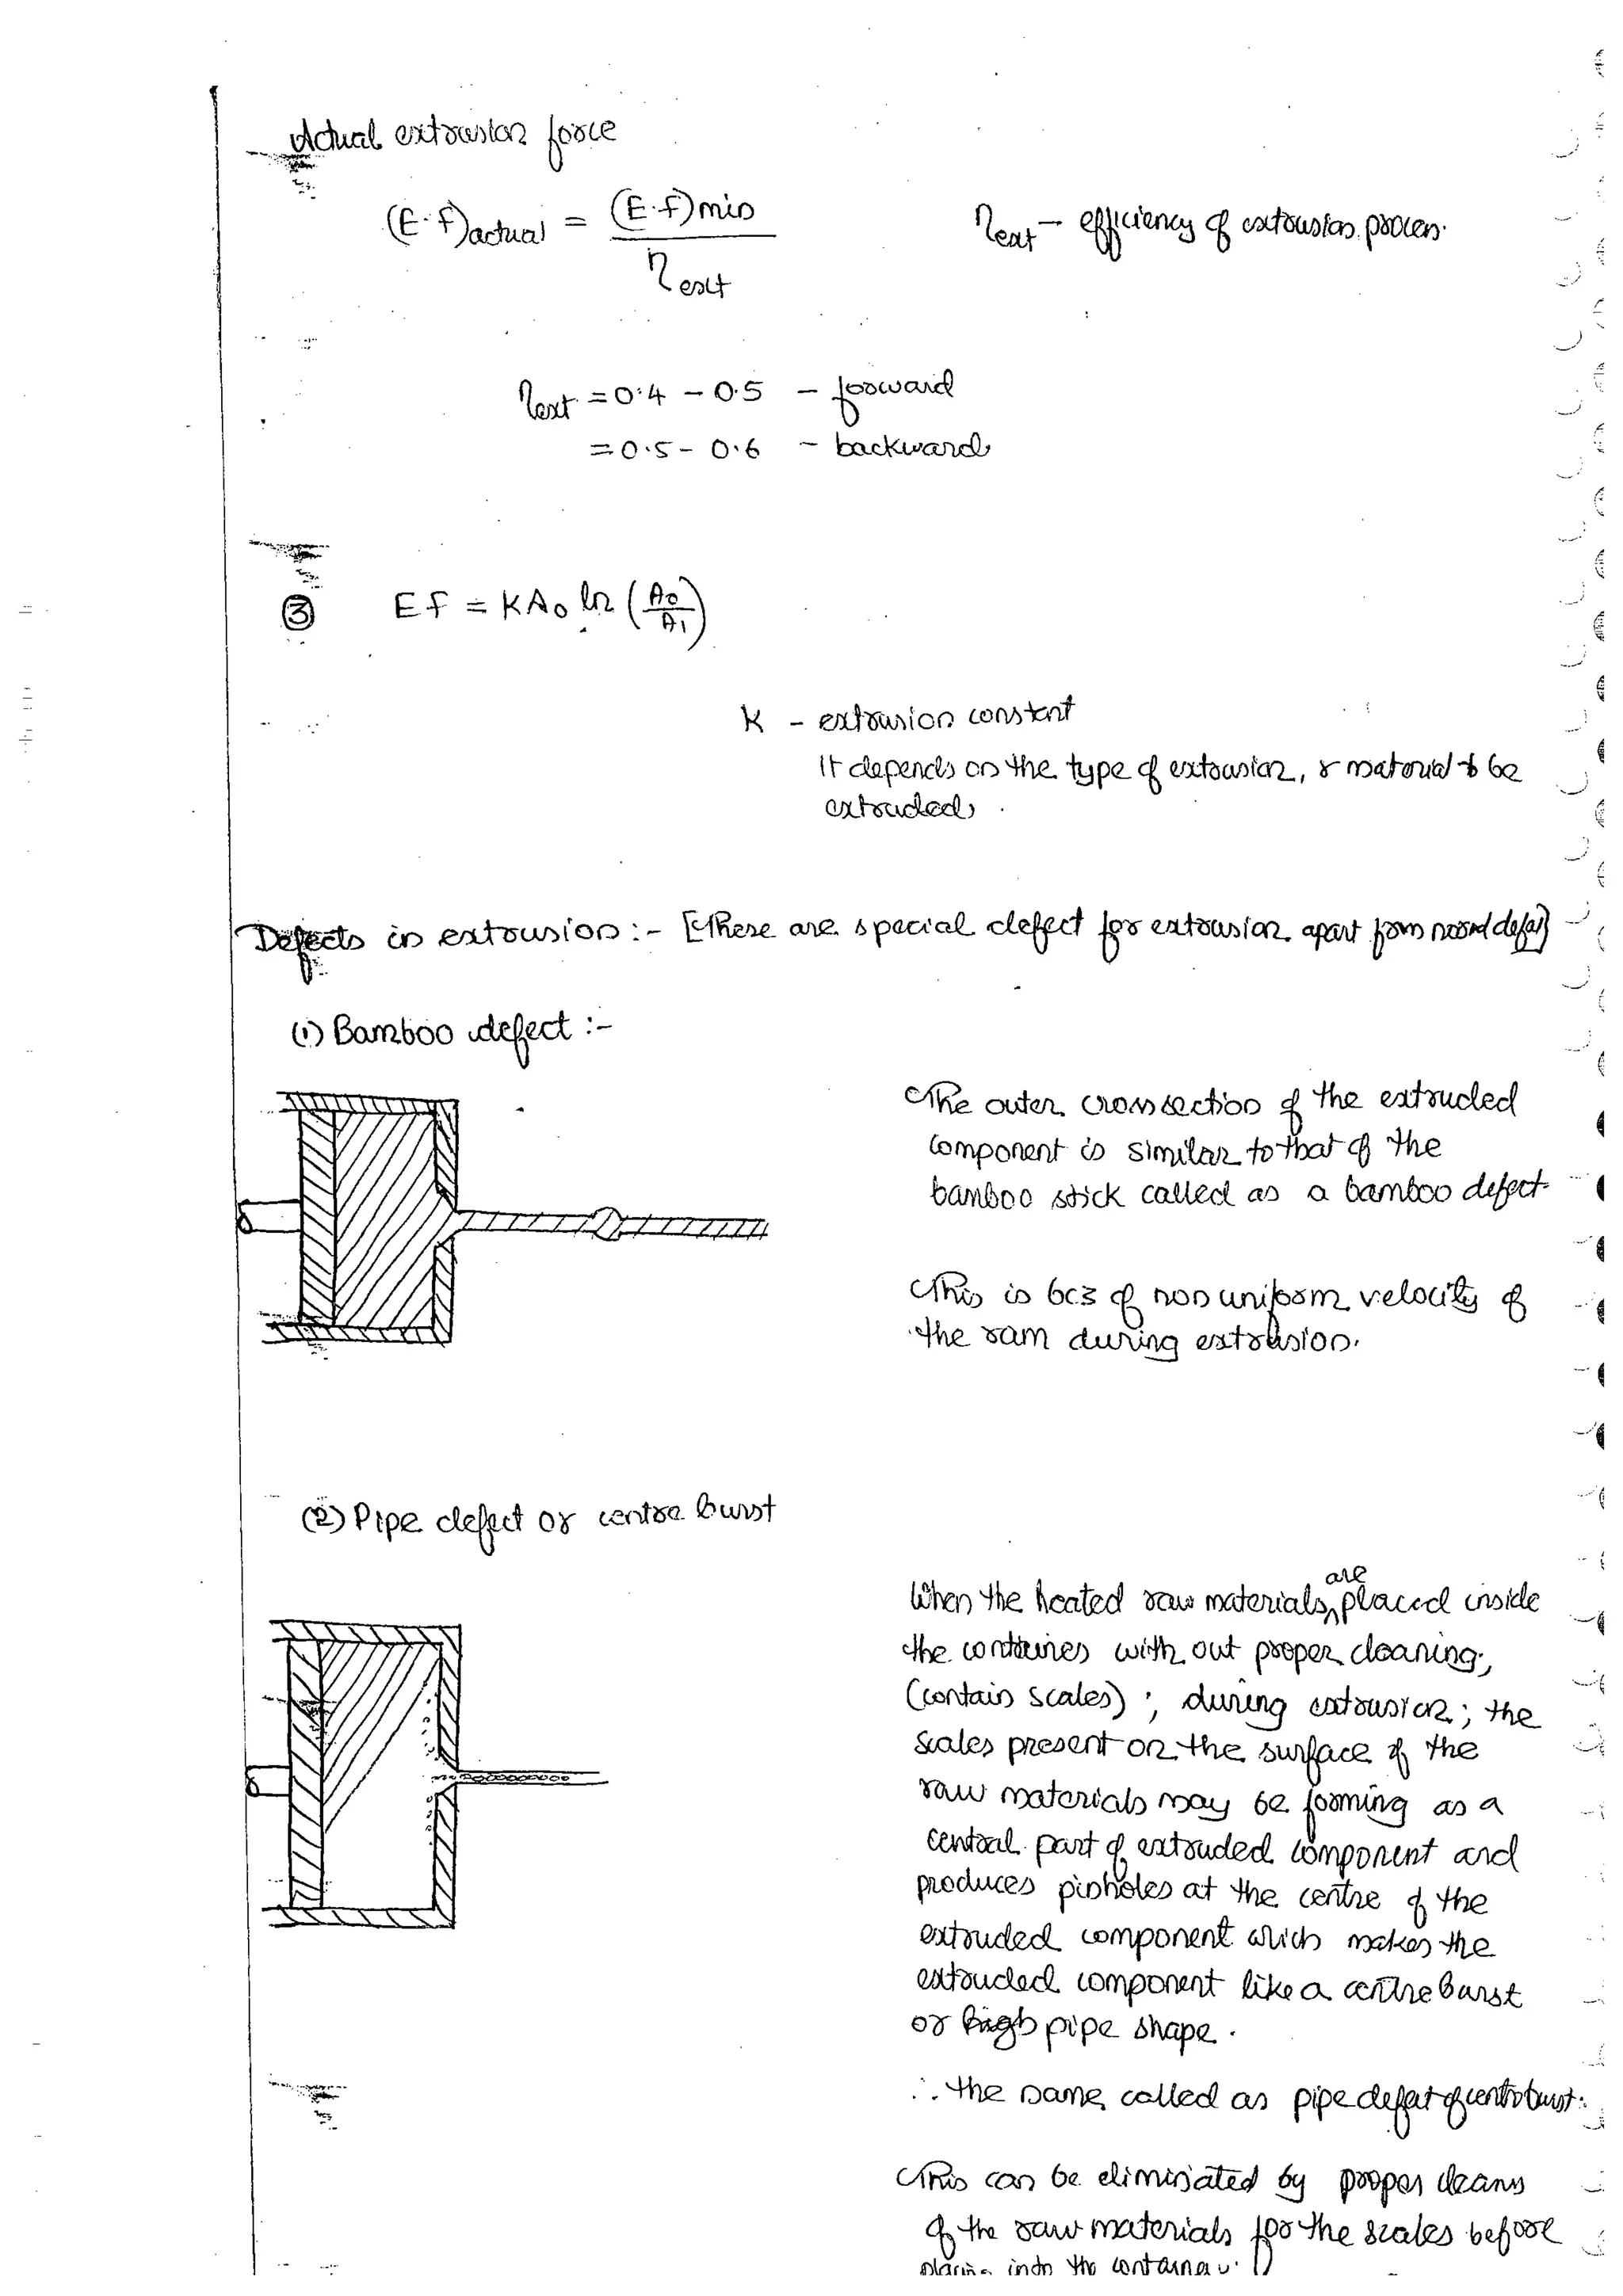 Actual extrusion force
(E.f)actual = (E.f)min / ηext
ηext – efficiency of extrusion process.
ηext = 0.4 – 0.5 – forward
= 0.5 – 0.6 – backward
③ Ef = KA₀ ln (A₀/A₁)
K – extrusion constant
It depends on the type of extrusion, & material to be
extruded.
Defects in extrusion :- [These are special defect for extrusion apart from normal defect]
(1) Bamboo defect :-
The outer cross section of the extruded
component is similar to that of the
bamboo stick called as a bamboo defect.
This is bcz of non uniform velocity of
the ram during extrusion.
(2) Pipe defect or centre burst
When the heated raw materials are placed inside
the containers with out proper cleaning,
(contain scales) ; during extrusion ; the
scales present on the surface of the
raw materials may be forming as a
central part of extruded component and
produces pinholes at the centre of the
extruded component which makes the
extruded component like a centre burst
or pipe shape.
∴ the same called as pipe defect of centre burst.
This can be eliminated by proper cleaning
of the raw materials for the scales before
placing into the container.